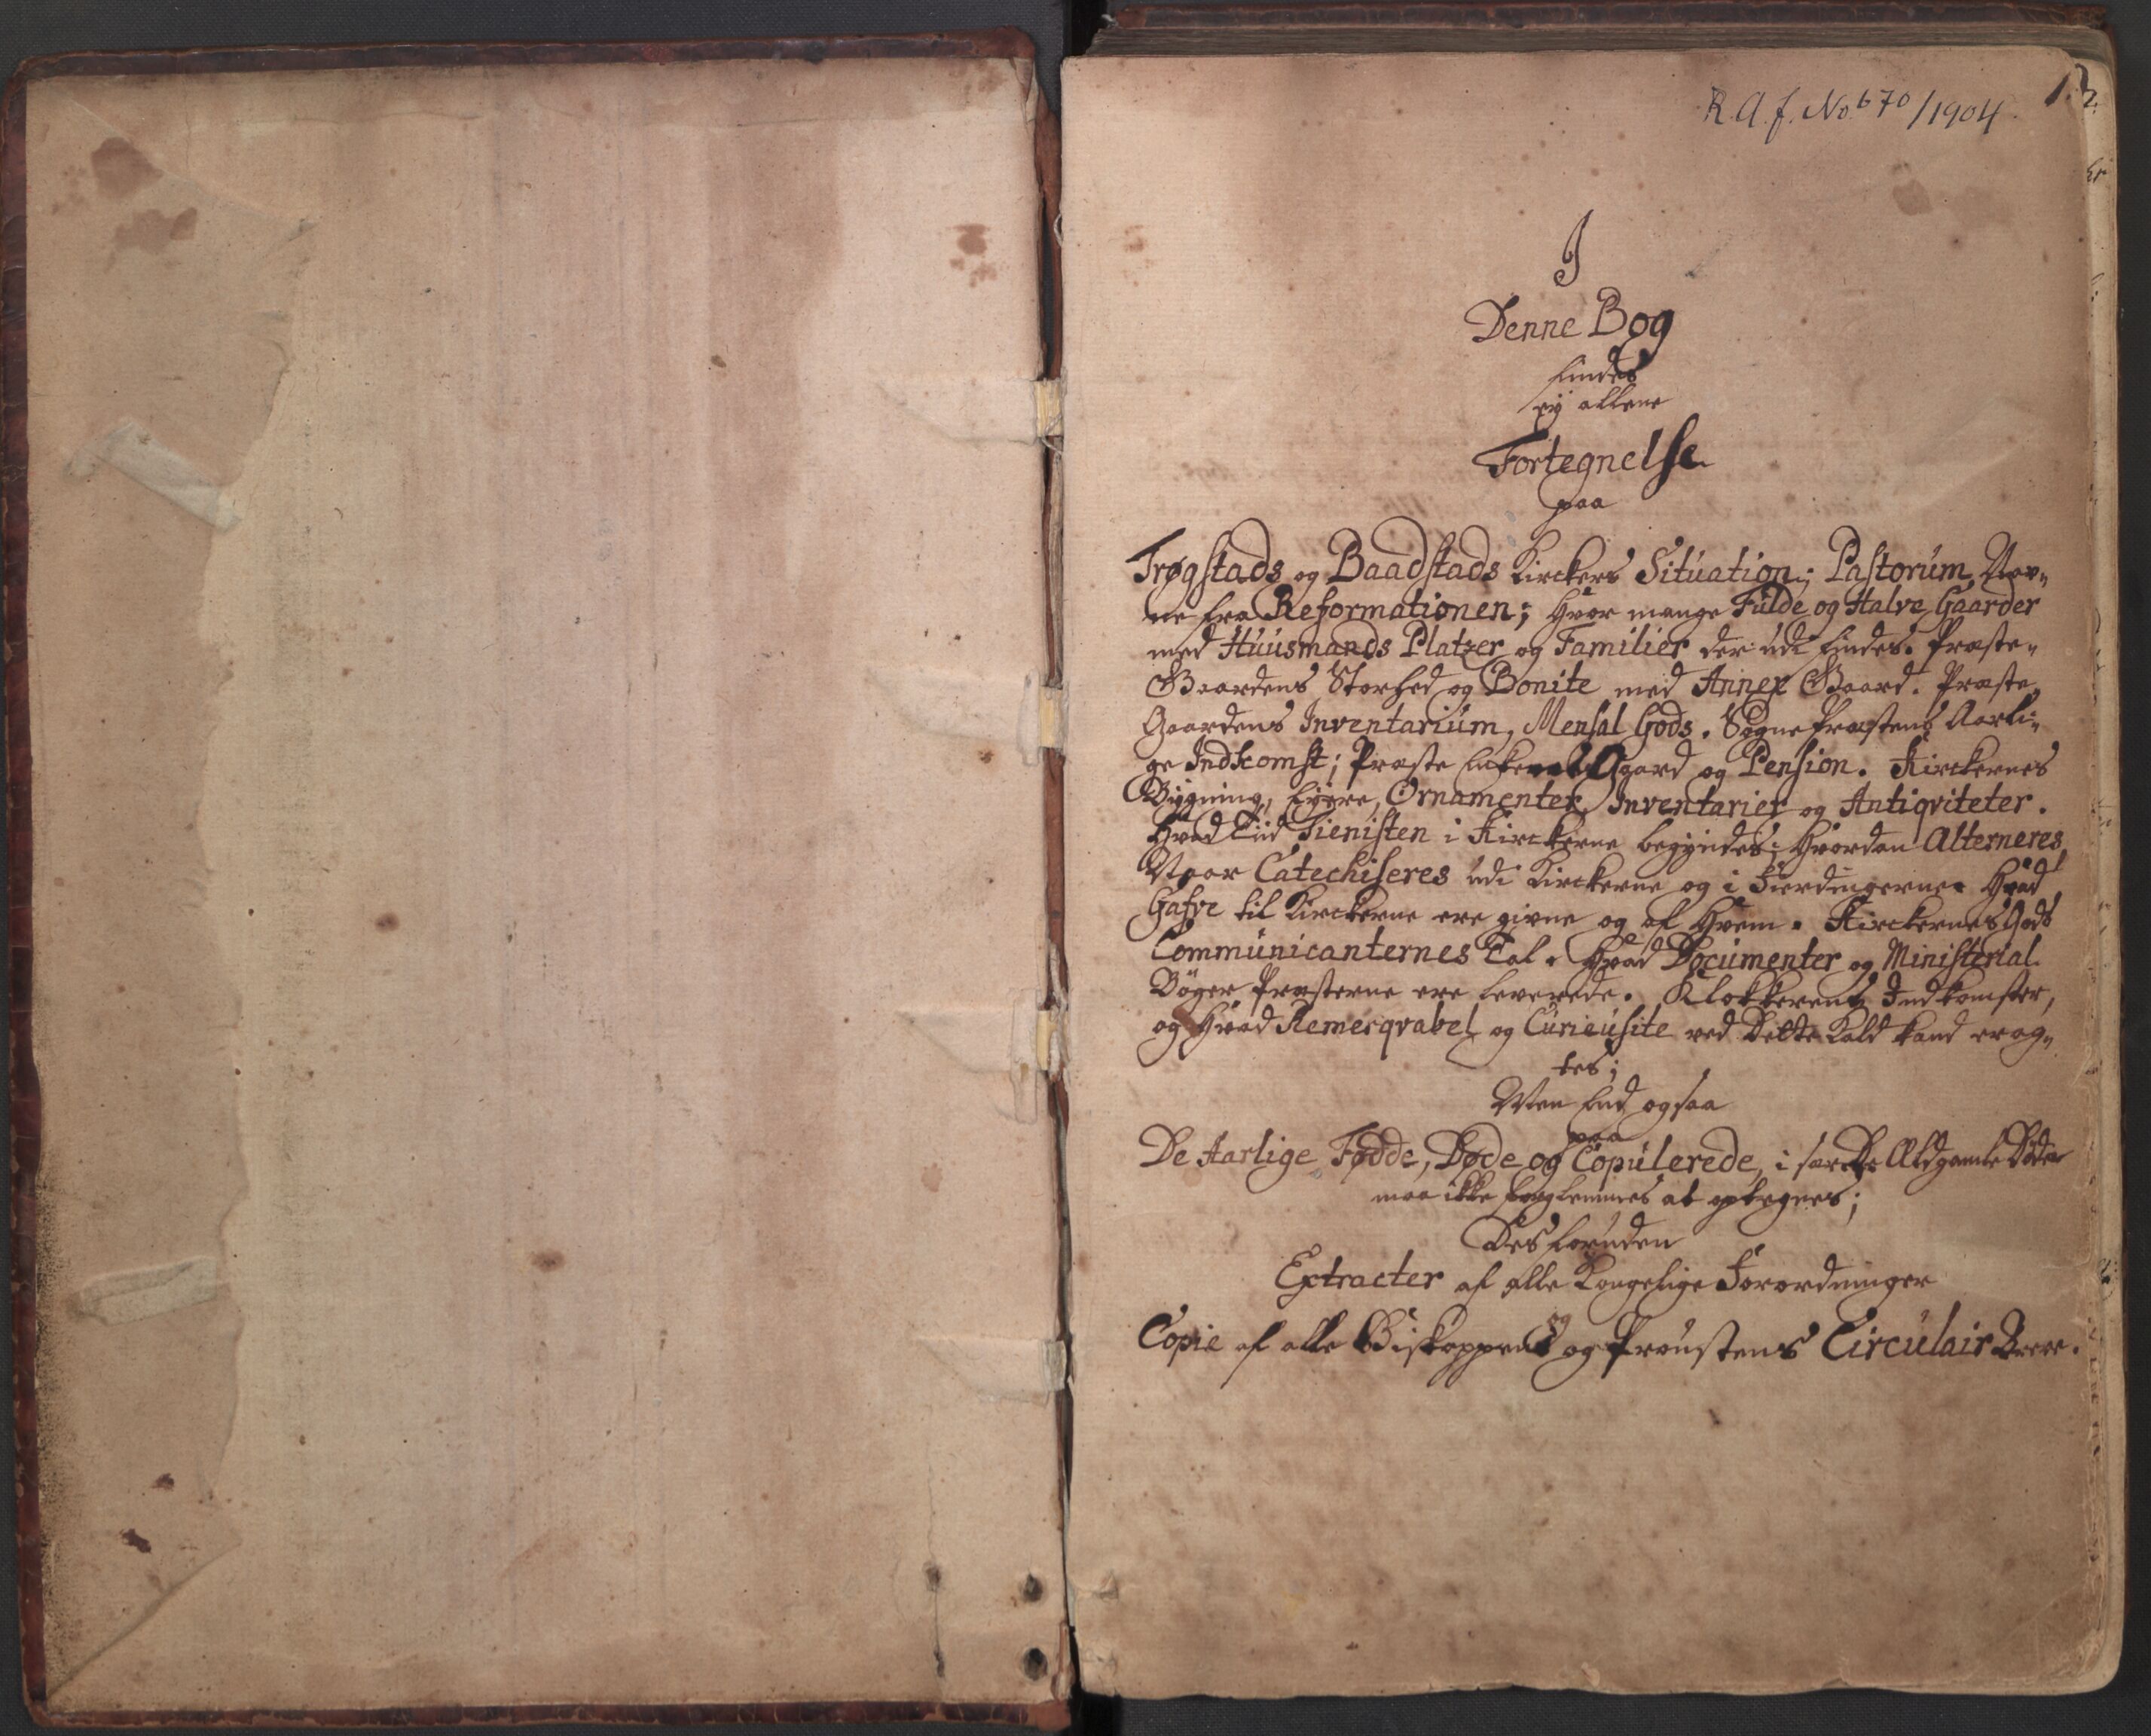 R.A.f. No. 670/1904.
1.
I
Denne Bog
findes
ey allene
Fortegnelse
paa
Trøgstads og Baadstads Kirckers Situation; Pastorum Nav-
ne fra Reformationen; Hvor mange Fulde og Halve Gaarder
med Huusmands Platzer og Familier der udi findes. Præste-
Gaardens Storhed og Bonite med Annex Gaard. Præste
Gaardens Inventarium, Mensal Gods. Sogne Præstens Aarli-
ge Indkomst; Præste Gaard og Pension. Kirckernes
Bygning, Eyere, Ornamenter, Inventarier og Antiqviteter.
Hvad Tiid Tienisten i Kirckerne begyndes; Hvordan Alterneres,
Naar Catechiseres udi Kirckerne og i Fierdingerne. Hvad
Gafve til Kirckerne ere givne og af Hvem. Kirckernes Gods
Communicanternes Tal. Hvad Documenter og Ministerial
Bøger Præsterne ere leverede. Klokkerens Indkomster,
og Hvad Remerqvabel og Curieusite ved Dette Kald kand erag-
tes;
Men End ogsaa
paa
De Aarlige Fødde, Døde og Copulerede, i sær De Ældgamle Døde
maa ikke forglemmes at optegnes;
Des foruden
Extracter af alle Kongelige Forordninger
og
Copie af alle Biskoppens og Proustens Circulair Breve.